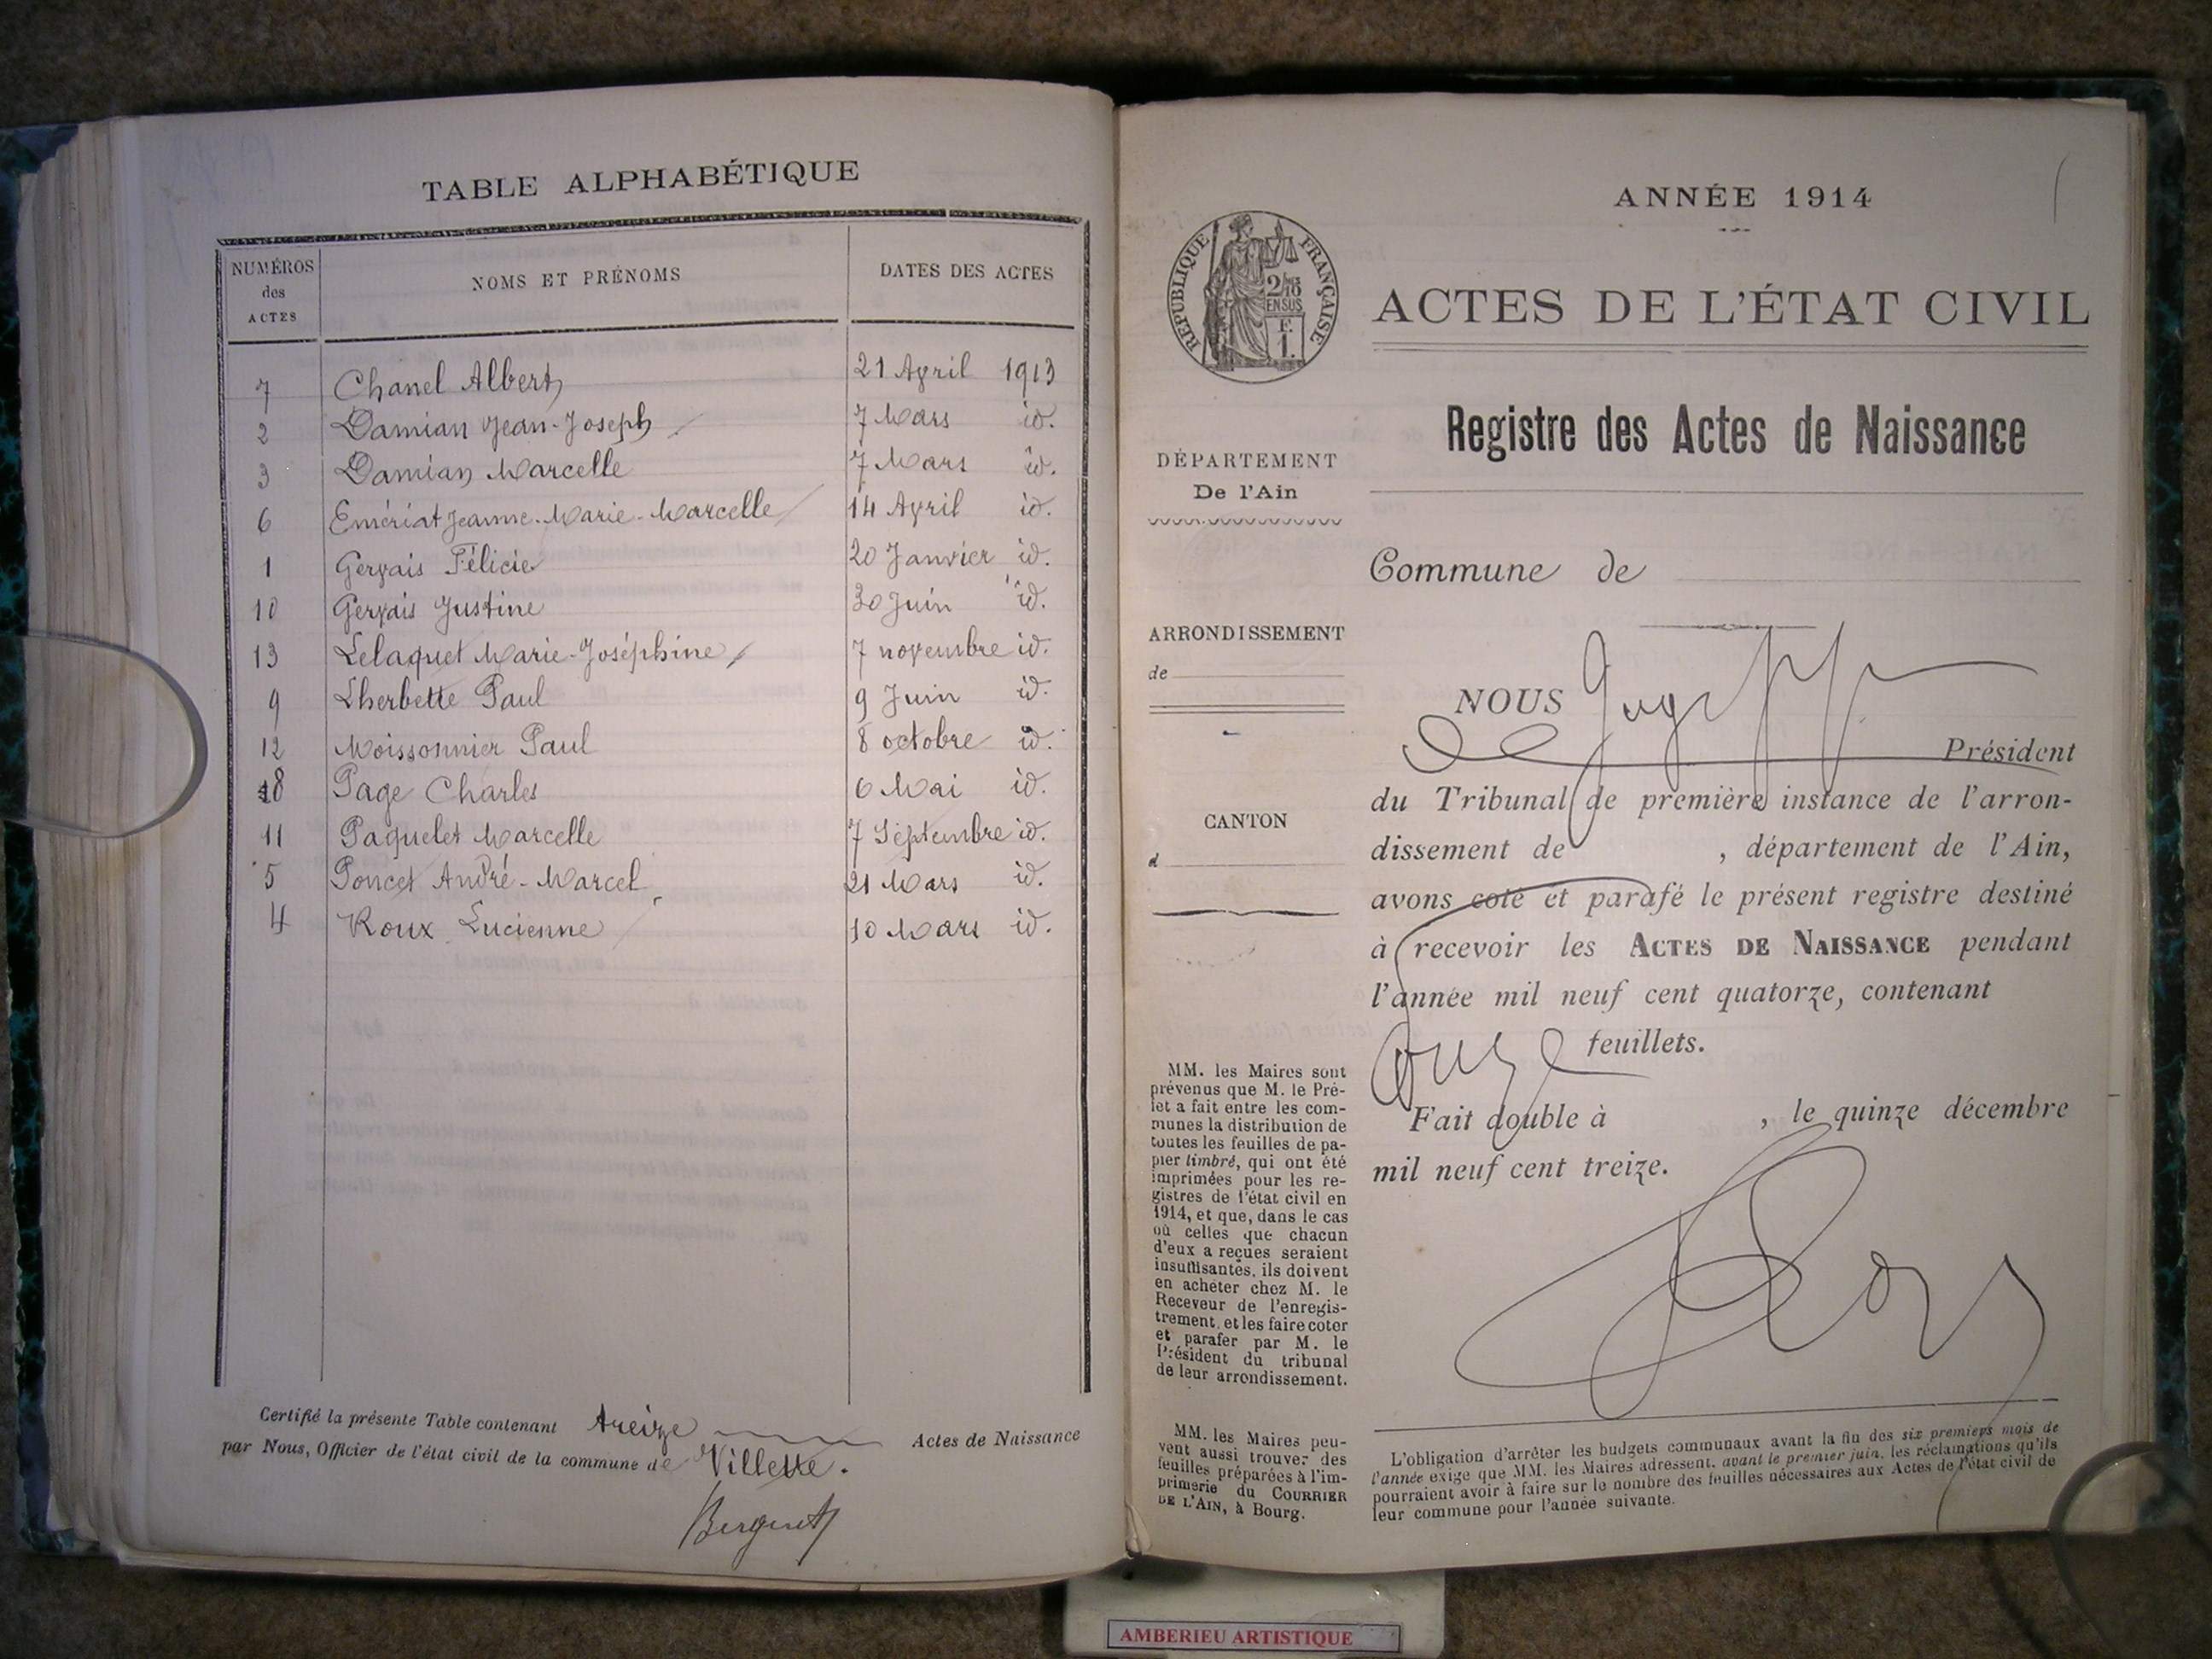 TABLE ALPHABÉTIQUE
NUMÉROS des ACTES
NOMS ET PRÉNOMS
DATES DES ACTES
7 Chanel Albert 21 Avril 1913
2 Damian Jean-Joseph 7 Mars id.
3 Damian Marcelle 7 Mars id.
6 Emériat Jeanne-Marie-Marcelle 14 Avril id.
1 Gervais Félicie 20 Janvier id.
10 Gervais Justine 30 Juin id.
13 Lelaquet Marie-Joséphine 7 novembre id.
9 Lherbette Paul 9 Juin id.
12 Moissonnier Paul 8 octobre id.
8 Page Charles 6 Mai id.
11 Paquelet Marcelle 7 Septembre id.
5 Poncet André-Marcel 21 Mars id.
4 Roux Lucienne 10 Mars id.
Certifié la présente Table contenant treize Actes de Naissance
par Nous, Officier de l'état civil de la commune de Villette.
ANNÉE 1914
RÉPUBLIQUE FRANÇAISE
2/10
EN SUS
F.
1.
ACTES DE L'ÉTAT CIVIL
Registre des Actes de Naissance
DÉPARTEMENT
De l'Ain
ARRONDISSEMENT
de
CANTON
d
MM. les Maires sont
prévenus que M. le Pré-
fet a fait entre les com-
munes la distribution de
toutes les feuilles de pa-
pier timbré, qui ont été
imprimées pour les re-
gistres de l'état civil en
1914, et que, dans le cas
où celles que chacun
d'eux a reçues seraient
insuffisantes, ils doivent
en acheter chez M. le
Receveur de l'enregis-
trement, et les faire coter
et parafer par M. le
Président du tribunal
de leur arrondissement.
MM. les Maires peu-
vent aussi trouver des
feuilles préparées à l'im-
primerie du COURRIER
DE L'AIN, à Bourg.
Commune de
NOUS
Président
du Tribunal de première instance de l'arron-
dissement de , département de l'Ain,
avons coté et parafé le présent registre destiné
à recevoir les ACTES DE NAISSANCE pendant
l'année mil neuf cent quatorze, contenant
feuillets.
Fait double à , le quinze décembre
mil neuf cent treize.
L'obligation d'arrêter les budgets communaux avant la fin des six premiers mois de
l'année exige que MM. les Maires adressent, avant le premier juin, les réclamations qu'ils
pourraient avoir à faire sur le nombre des feuilles nécessaires aux Actes de l'état civil de
leur commune pour l'année suivante.
AMBERIEU ARTISTIQUE